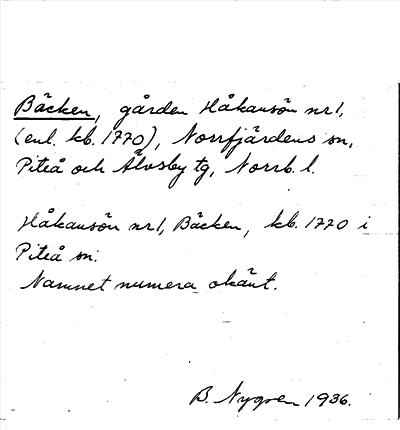 Bäcken, gården Håkansön nr 1,
(enl. kb. 1770), Norrfjärdens sn,
Piteå och Älvsby tg, Norrb. l.
Håkansön nr 1, Bäcken, kb. 1770 i
Piteå sn.
Namnet numera okänt.
B. Nygren 1936.